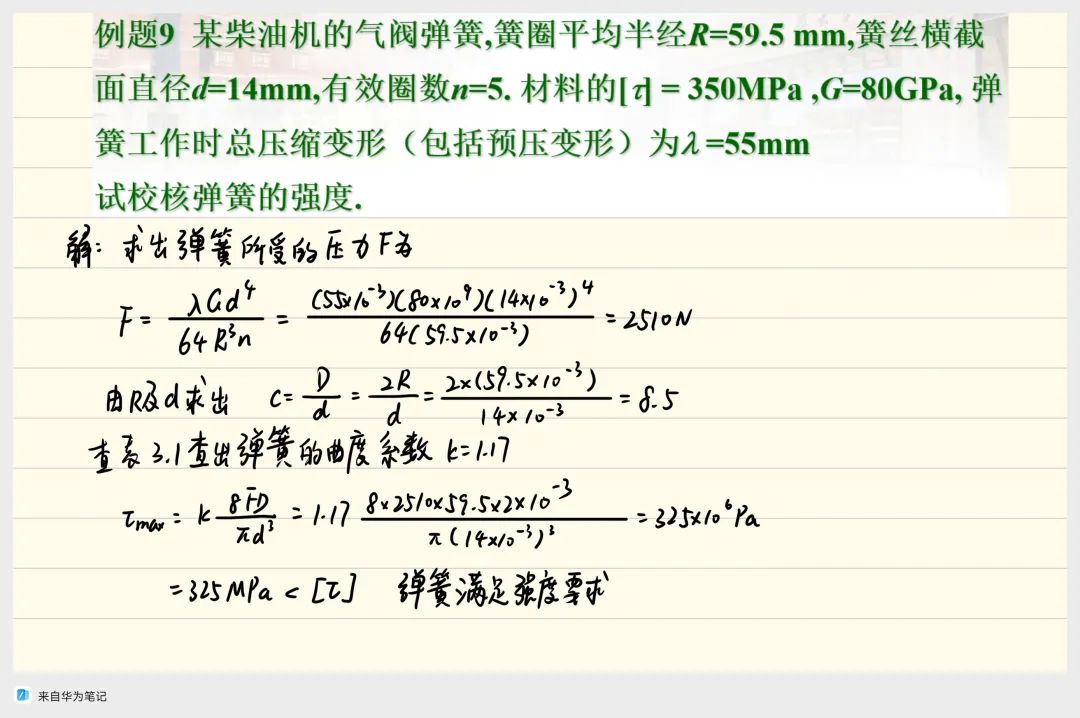 例题9 某柴油机的气阀弹簧,簧圈平均半经R=59.5 mm,簧丝横截
面直径d=14mm,有效圈数n=5. 材料的[τ] = 350MPa ,G=80GPa, 弹
簧工作时总压缩变形（包括预压变形）为λ=55mm
试校核弹簧的强度.
解: 求出弹簧所受的压力F为
F = λGd⁴ / 64R³n = (55×10⁻³)(80×10⁹)(14×10⁻³)⁴ / 64(59.5×10⁻³) = 2510N
由R及d求出 c = D/d = 2R/d = 2×(59.5×10⁻³) / 14×10⁻³ = 8.5
查表3.1查出弹簧的曲度系数 k=1.17
τmax = k 8FD/πd³ = 1.17 8×2510×59.5×2×10⁻³ / π(14×10⁻³)³ = 325×10⁶Pa
=325MPa < [τ] 弹簧满足强度要求
来自华为笔记